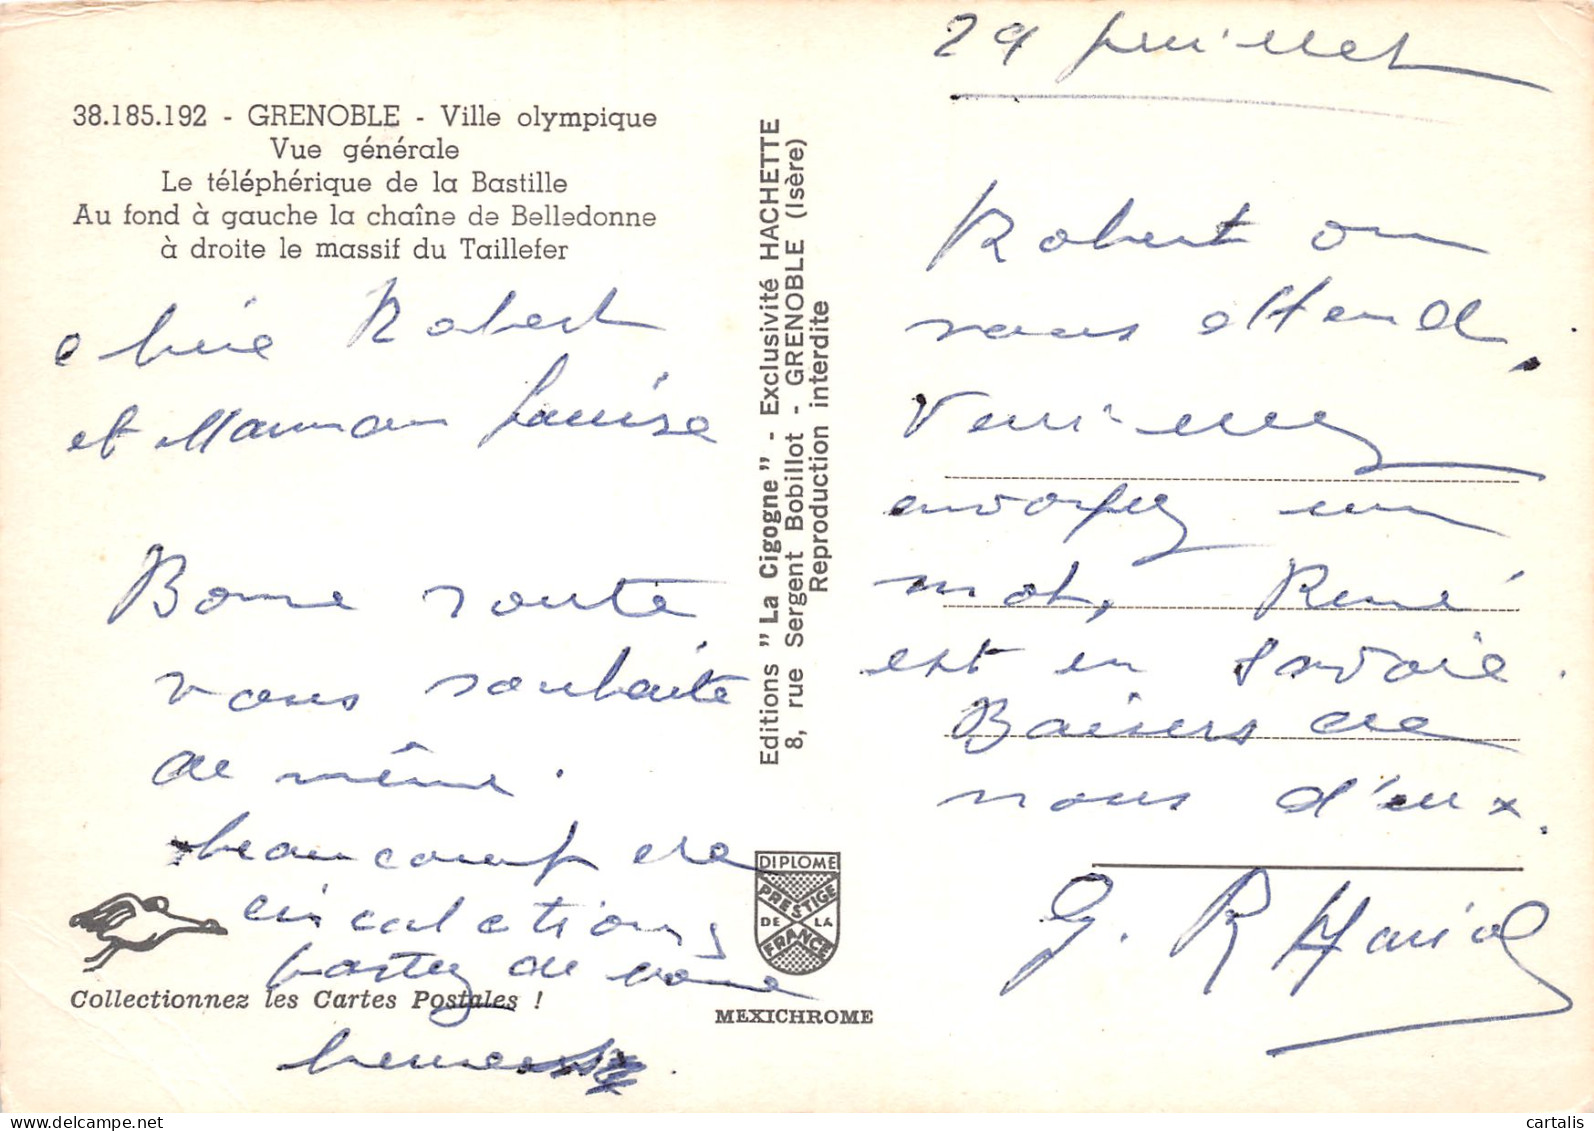 38.185.192 - GRENOBLE - Ville olympique
Vue générale
Le téléphérique de la Bastille
Au fond à gauche la chaîne de Belledonne
à droite le massif du Taillefer
chère Robert
et Maman Louise
Bonne route
vous souhaite
de même.
beaucoup de
circulations
partez de bonne
heure
Collectionnez les Cartes Postales !
Editions "La Cigogne" - Exclusivité HACHETTE
8, rue Sergent Bobillot - GRENOBLE (Isère)
Reproduction interdite
DIPLOME
PRESTIGE
DE LA
FRANCE
MEXICHROME
29 juillet
Robert on
vous attend.
Venez
envoyez un
mot, René
est en Savoie.
Baisers de
nous d'eux.
G. R